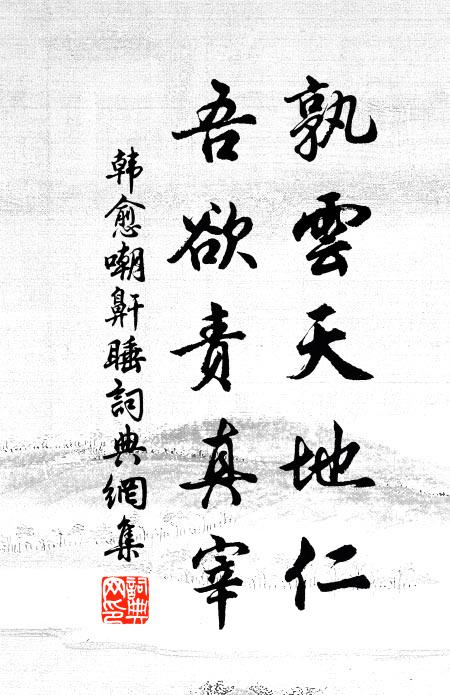 孰雲天地仁
吾欲責真宰
韩愈嘲鼾睡詞典網集
詞典网印